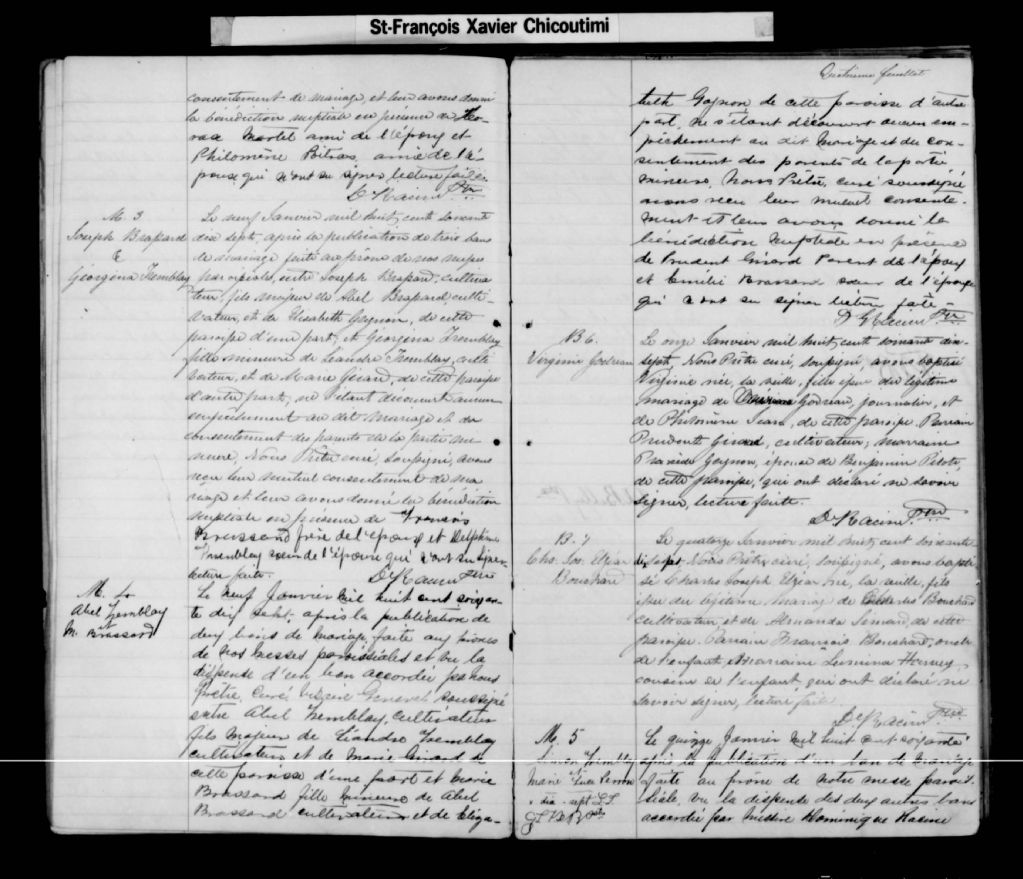 St-François Xavier Chicoutimi
consentement de mariage, et leur avons donné
la bénédiction nuptiale en présence de Ho-
race Martel ami de l'époux et
Philomène Bitras, amie de l'é-
pouse qui n'ont su signer, lecture faite.
D. Racine Ptre
M 3
Joseph Brassard
&
Georgéna Tremblay
Le neuf Janvier mil huit cent soixante
dix sept, après la publication de trois bans
de mariage faite au prône de nos messes
paroissiales, entre Joseph Brassard, cultiva-
teur, fils majeur de Abel Brassard, culti-
vateur, et de Elisabeth Gagnon, de cette
paroisse d'une part, et Georgina Tremblay
fille mineure de Léandre Tremblay, culti
vateur, et de Marie Girard, de cette paroisse
d'autre part, ne s'étant découvert aucun
empêchement au dit mariage et du
consentement des parents de la partie mi
neure, Nous Prêtre curé, soussigné, avons
reçu leur mutuel consentement de ma
riage et leur avons donné la bénédiction
nuptiale en présence de François
Brassard frère de l'époux et Delphine
Tremblay soeur de l'épouse qui n'ont su signer
lecture faite.
D. Racine Ptre
M. 4
Abel Tremblay
et
M. Brassard
Le neuf Janvier mil huit cent soixan-
te dix sept, après la publication de
deux bans de mariage, faite aux prônes
de nos messes paroissiales et vu la
dispense d'un ban accordée par nous
Prêtre, Curé Vicaire Général soussigné
entre Abel Tremblay, cultivateur
fils majeur de Léandre Tremblay
cultivateur et de Marie Girard de
cette paroisse d'une part et Marie
Brassard fille mineure de Abel
Brassard cultivateur et de Eliza-
Quatrième feuillet
beth Gagnon, de cette paroisse d'autre
part, ne s'étant découvert aucun em-
pêchement au dit mariage et du con-
sentement des parents de la partie
mineure, Nous Prêtre, curé soussigné
avons reçu leur mutuel consente-
ment et leur avons donné la
bénédiction nuptiale en présence
de Prudent Girard Parent de l'époux
et Emélie Brassard soeur de l'épouse
qui n'ont su signer lecture faite
D Racine Ptre
B 6.
Virginie Godreau
Le onze Janvier mil huit cent soixante dix-
sept, Nous Prêtre curé, soussigné, avons baptisé
Virginie née, la veille, fille issue du légitime
mariage de Godreau, journalier, et
de Philomène Jean, de cette paroisse Parrain
Prudent Girard, cultivateur, marraine
Praxède Gagnon, épouse de Benjamin Pilote,
de cette paroisse, qui ont déclaré ne savoir
signer, lecture faite.
D. Racine Ptre
B. 7
Chs. Jos. Elzéar
Bouchard
Le quatorze Janvier mil huit cent soixante
dix sept, Nous Prêtre curé, soussigné, avons bapti
sé Charles Joseph Elzéar né, la veille, fils
issu du légitime mariage de Charles Bouchard
cultivateur et de Almanda Simard, de cette
paroisse. Parrain François Bouchard, oncle
de l'enfant, Marraine Hervey,
cousine de l'enfant, qui ont déclaré ne
savoir signer, lecture faite
D. Racine Ptre
M. 5
Simon Tremblay
Marie Luce Perron
Le quinze Janvier mil huit cent soixante
après la publication d'un ban de mariage
faite au prône de notre messe parois
siale, vu la dispense des deux autres bans
accordée par messire Dominique Racine